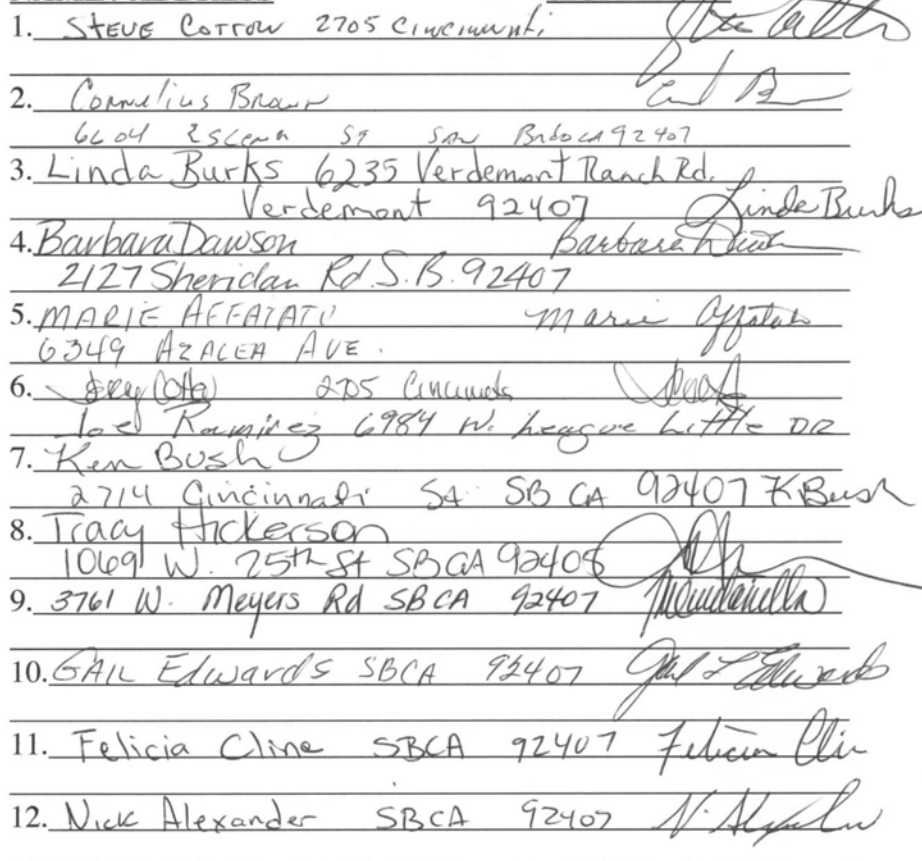 1. STEVE COTTOW 2705 Cincinnati
2. Cornelius Brown
6604 ST SAN Brdo CA 92407
3. Linda Burks 6235 Verdemont Ranch Rd.
Verdemont 92407 Linda Burks
4. Barbara Dawson Barbara
2127 Sheridan Rd. S.B. 92407
5. MARIE AFFATATO Marie Affatato
6349 AZALEA AVE.
6. 2705
Joel Ramirez 6984 N. League Little DR
7. Ken Bush
2714 Cincinnati St SB CA 92407 K Bush
8. Tracy Hickerson
1069 W. 25th St SBCA 92405
9. 3761 W. Meyers Rd SBCA 92407
10. GAIL Edwards SBCA 92407 Gail L Edwards
11. Felicia Cline SBCA 92407 Felicia Cline
12. Nick Alexander SBCA 92407